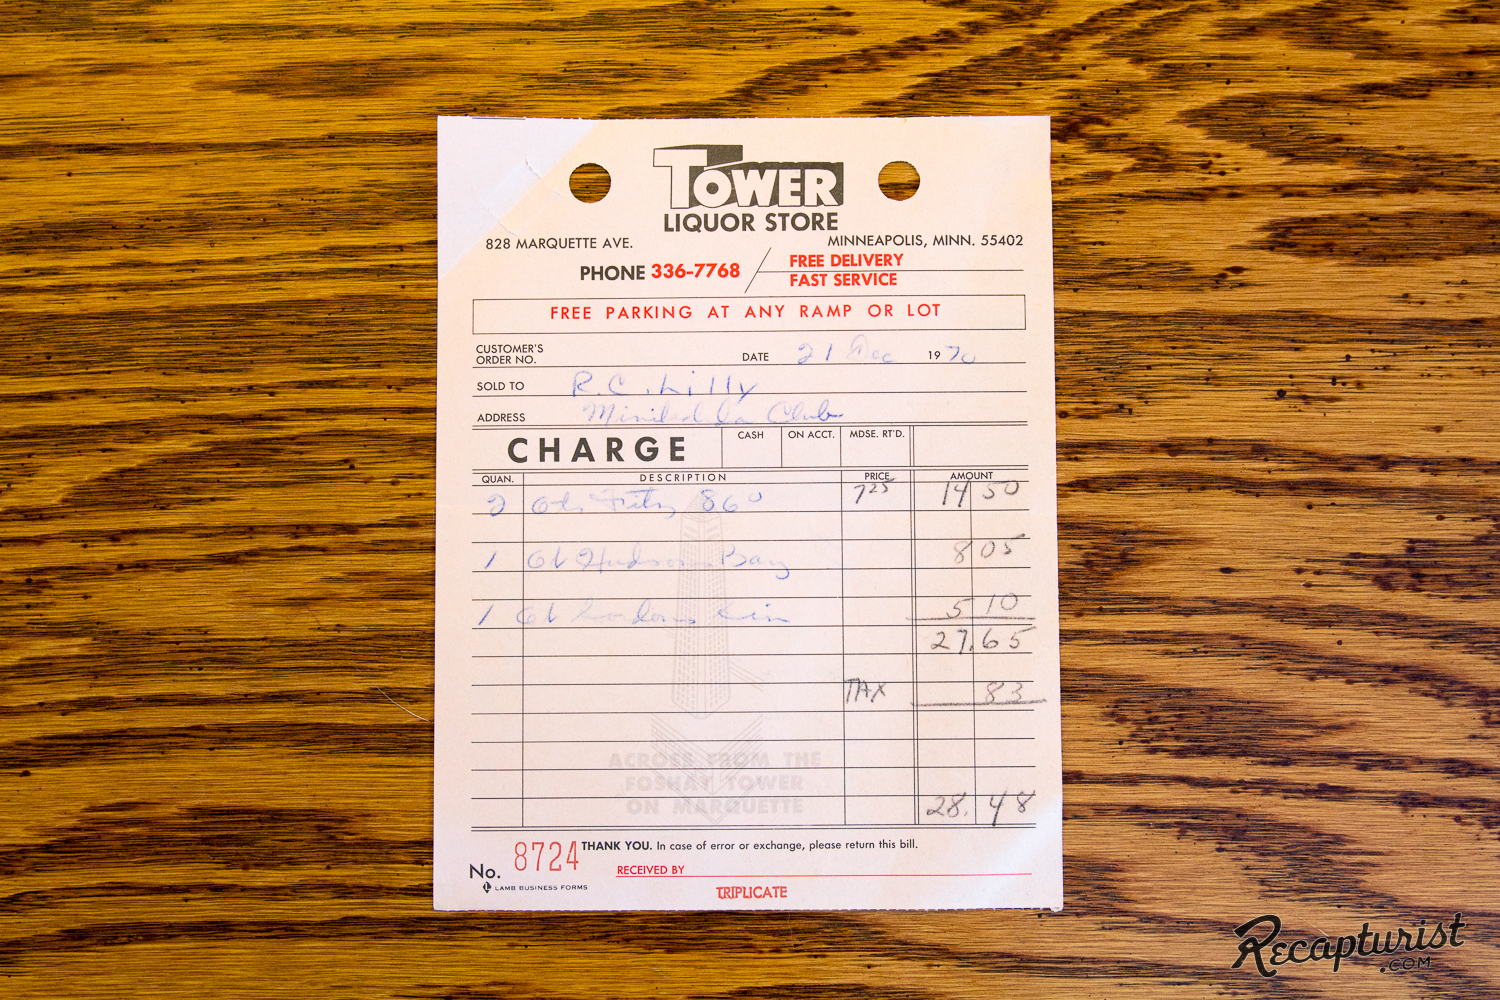 TOWER
LIQUOR STORE
828 MARQUETTE AVE. MINNEAPOLIS, MINN. 55402
PHONE 336-7768 FREE DELIVERY
FAST SERVICE
FREE PARKING AT ANY RAMP OR LOT
CUSTOMER'S
ORDER NO. DATE 21 Dec 1970
SOLD TO R.C. Lilly
ADDRESS Club
CHARGE CASH ON ACCT. MDSE. RT'D.
QUAN. DESCRIPTION PRICE AMOUNT
2 Qts Fitz 86° 7 25 14 50
1 Qt Hudson Bay 8 05
1 Qt 5 10
27.65
TAX 83
ACROSS FROM THE
FOSHAY TOWER
ON MARQUETTE
28.48
No. 8724 THANK YOU. In case of error or exchange, please return this bill.
RECEIVED BY
LAMB BUSINESS FORMS
TRIPLICATE
Recapturist
.COM